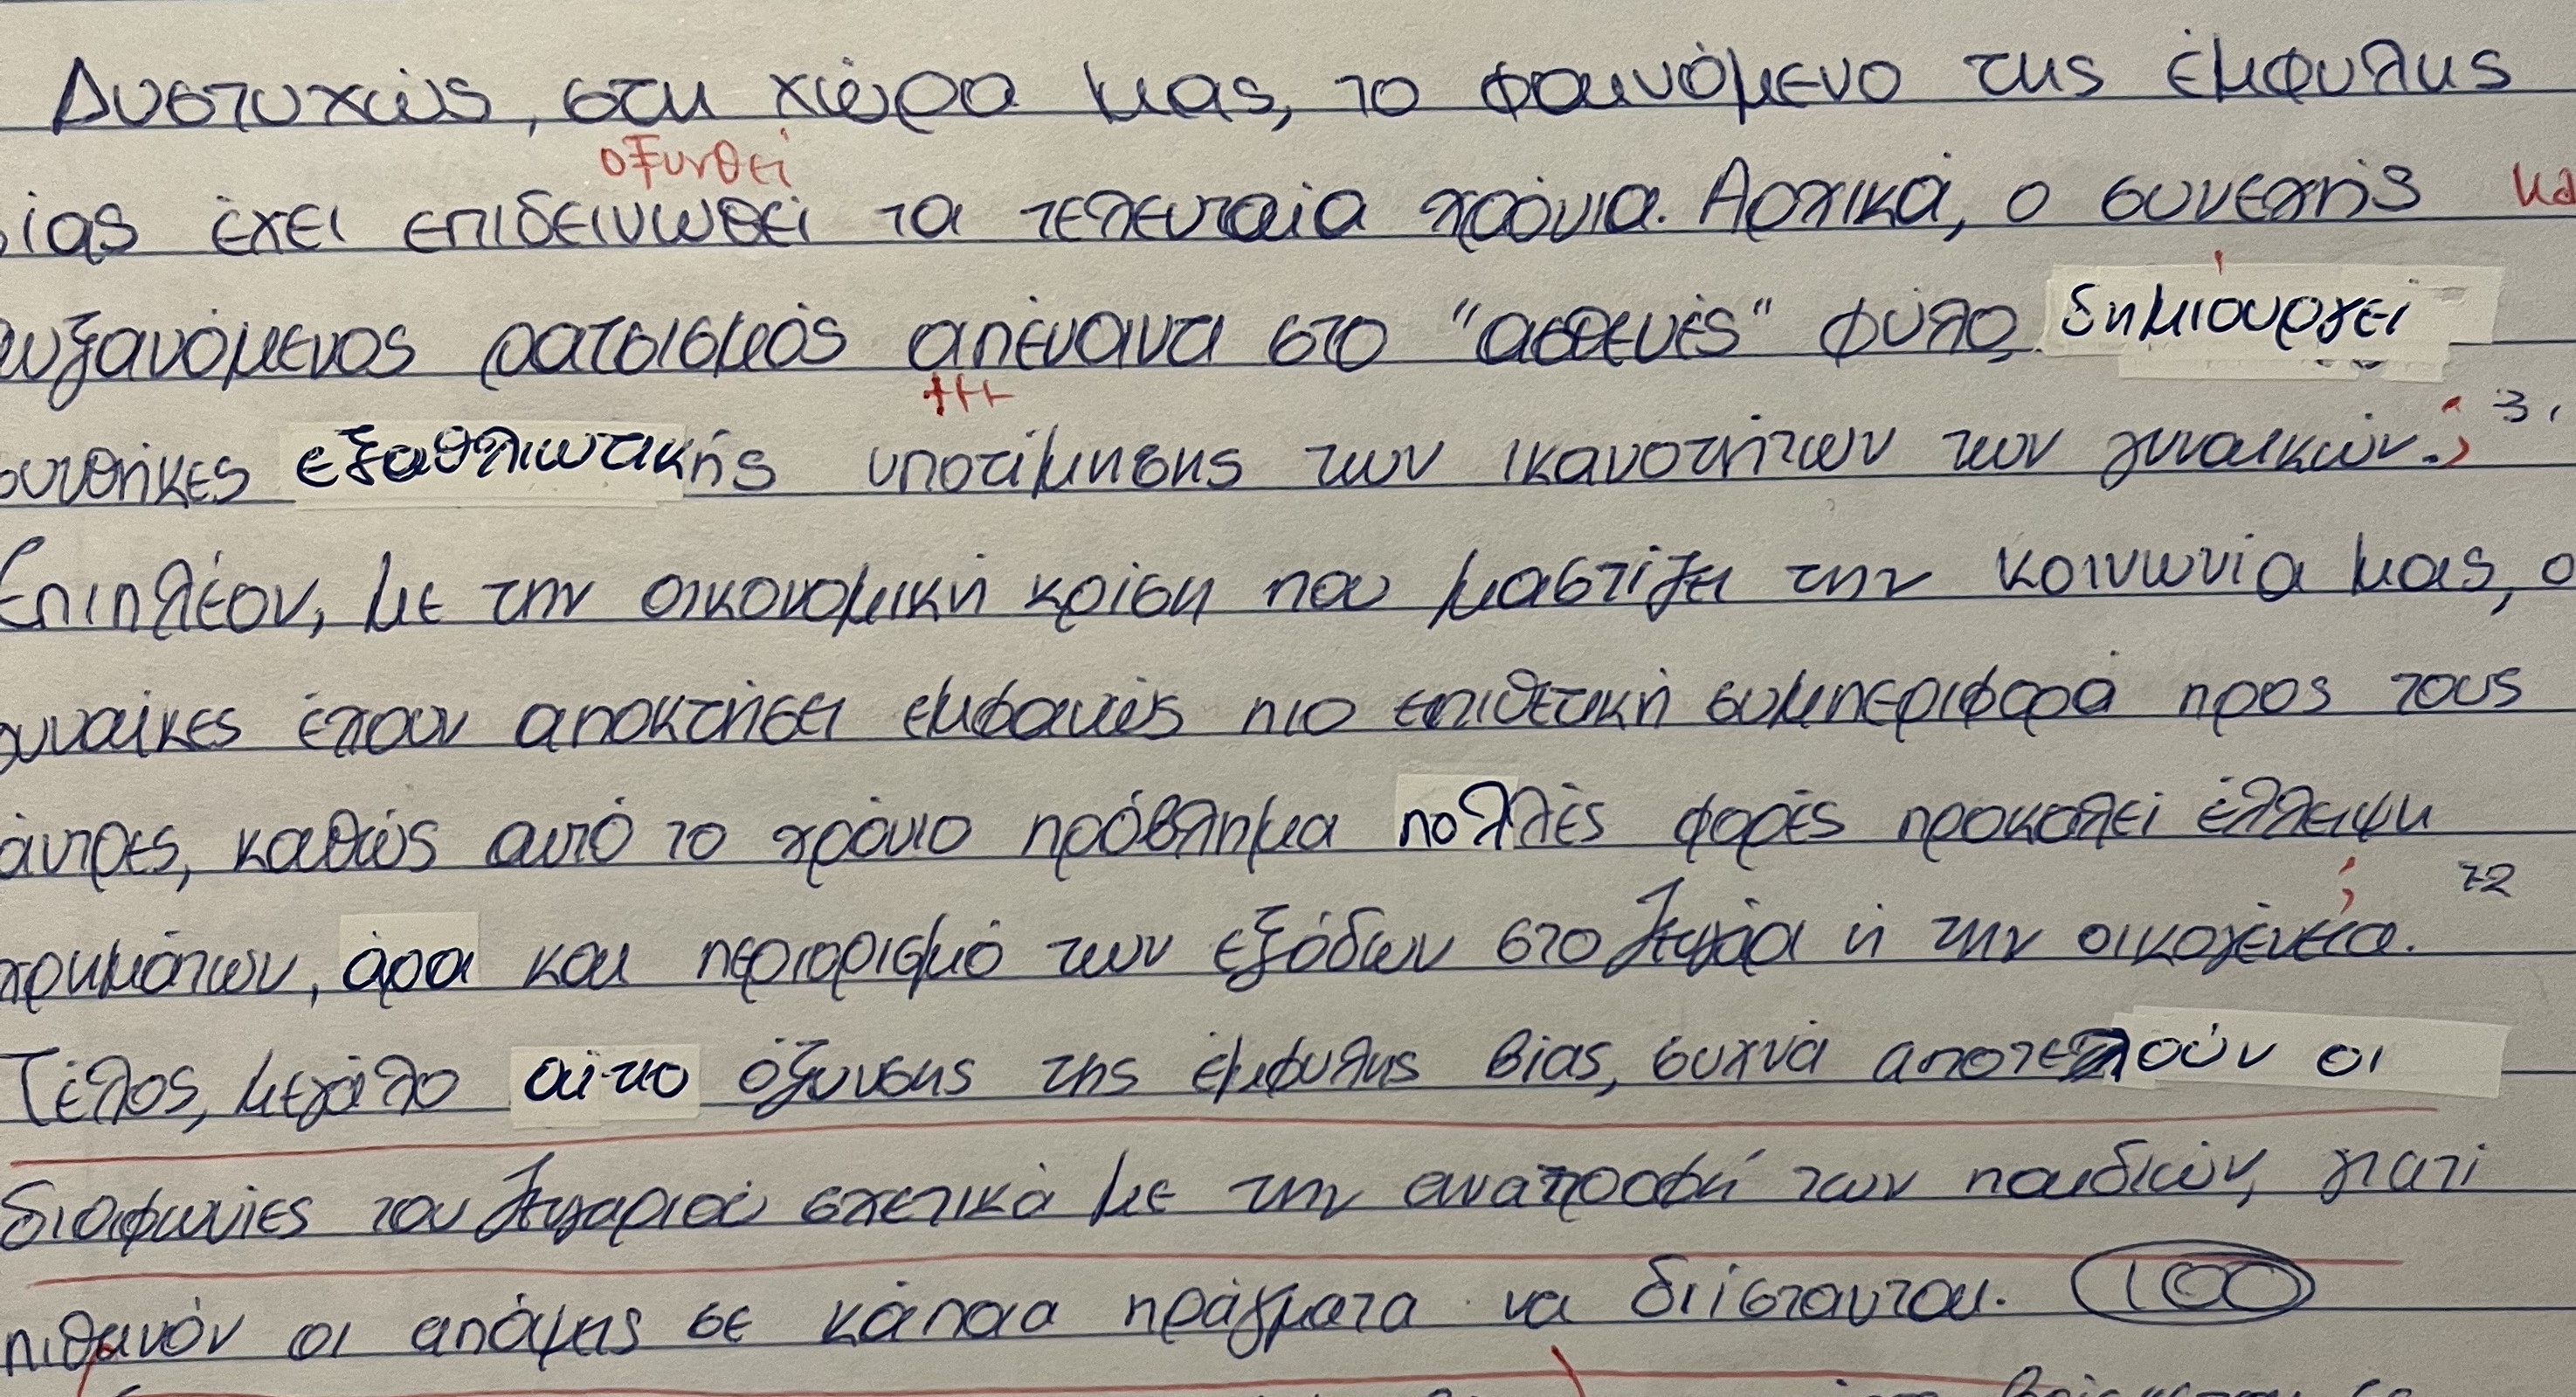 Δυστυχώς, στη χώρα μας, το φαινόμενο της έμφυλης
οξυνθεί
βίας έχει επιδεινωθεί τα τελευταία χρόνια. Αρχικά, ο συνεχής κα
αυξανόμενος ρατσισμός απέναντι στο "ασθενές" φύλο, δημιουργεί
+++
συνθήκες εξαθλιωτικής υποτίμησης των ικανοτήτων των γυναικών. ; 3,
Επιπλέον, με την οικονομική κρίση που μαστίζει την κοινωνία μας, ο
γυναίκες έχουν αποκτήσει εμφανώς πιο επιθετική συμπεριφορά προς τους
άντρες, καθώς αυτό το χρόνιο πρόβλημα πολλές φορές προκαλεί έλλειψη
χρημάτων, άρα και περιορισμό των εξόδων στο ζευγάρι ή την οικογένεια. ; 72
Τέλος, μεγάλο αίτιο όξυνσης της έμφυλης βίας, συχνά αποτελούν οι
διαφωνίες του ζευγαριού σχετικά με την ανατροφή των παιδιών, γιατί
πιθανόν οι απόψεις σε κάποια πράγματα να διίστανται. 100